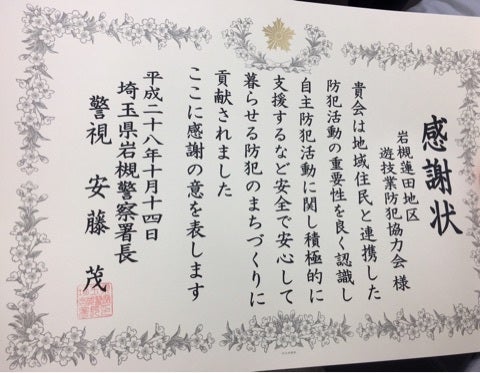 感謝状
岩槻蓮田地区
遊技業防犯協力会 様
貴会は地域住民と連携した
防犯活動の重要性を良く認識し
自主防犯活動に関し積極的に
支援するなど安全で安心して
暮らせる防犯のまちづくりに
貢献されました
ここに感謝の意を表します
平成二十八年十月十四日
埼玉県岩槻警察署長
警視 安藤 茂